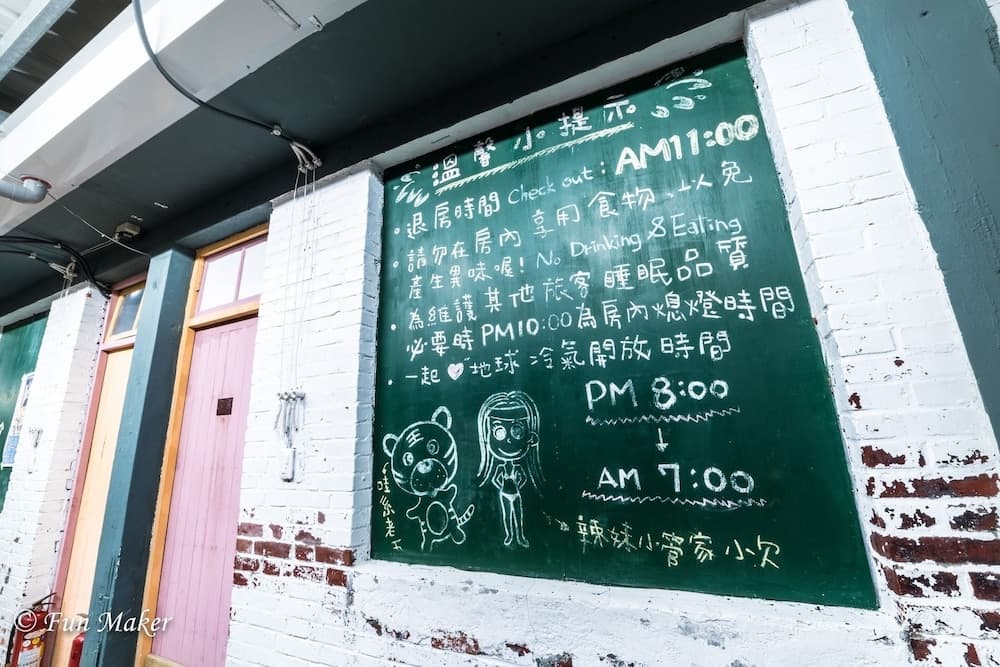 溫馨小提示
・退房時間 Check out : AM11:00
・請勿在房內享用食物,以免
產生異味喔! No Drinking & Eating
・為維護其他旅客睡眠品質
必要時PM10:00為房內熄燈時間
・一起♥地球 冷氣開放時間
PM 8:00
↓
AM 7:00
辣妹小管家 小欠
© Fun Maker